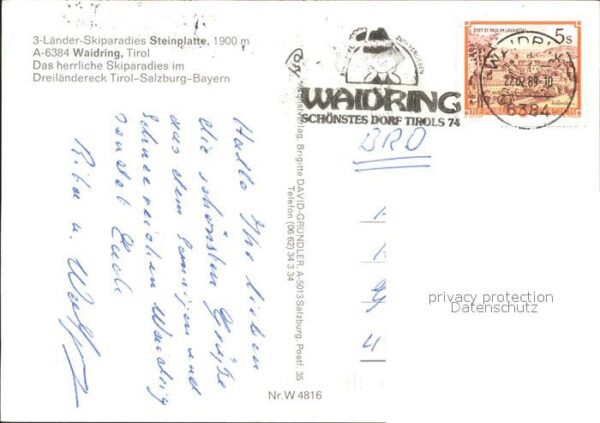 3-Länder-Skiparadies Steinplatte, 1900 m
A-6384 Waidring, Tirol
Das herrliche Skiparadies im
Dreiländereck Tirol-Salzburg-Bayern
Hallo Ihr Lieben
die schönsten Grüße
aus dem sonnigen und
schneereichen Waidring
sendet Euch
u. Wolfgang
Kunstverlag, Brigitte DAVID-GRÜNDLER, A-5013 Salzburg, Postf. 35
Telefon (06 62) 34 3 34
Nr. W 4816
WAIDRING
SCHÖNSTES DORF TIROLS 74
STIFT ST. PAUL IM LAVANTTAL
5 S
REPUBLIK ÖSTERREICH
WAIDRING
27.02.89-10
6384
BRD
privacy protection
Datenschutz